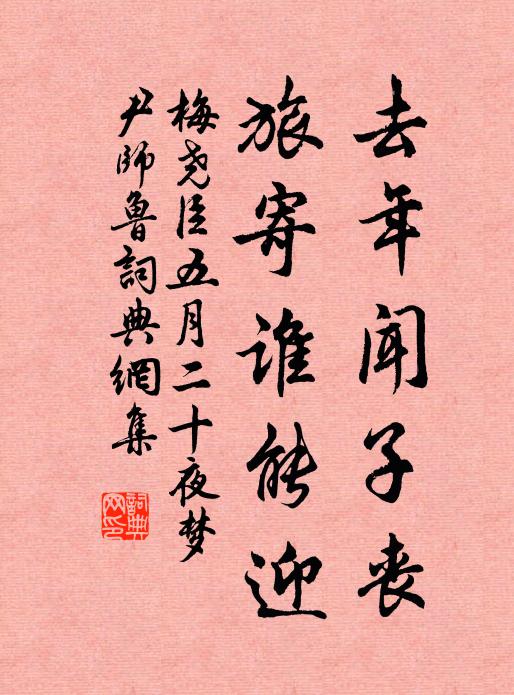 去年闻子丧
旅寄谁能迎
梅尧臣五月二十夜梦
尹师鲁词典网集
詞典
网印